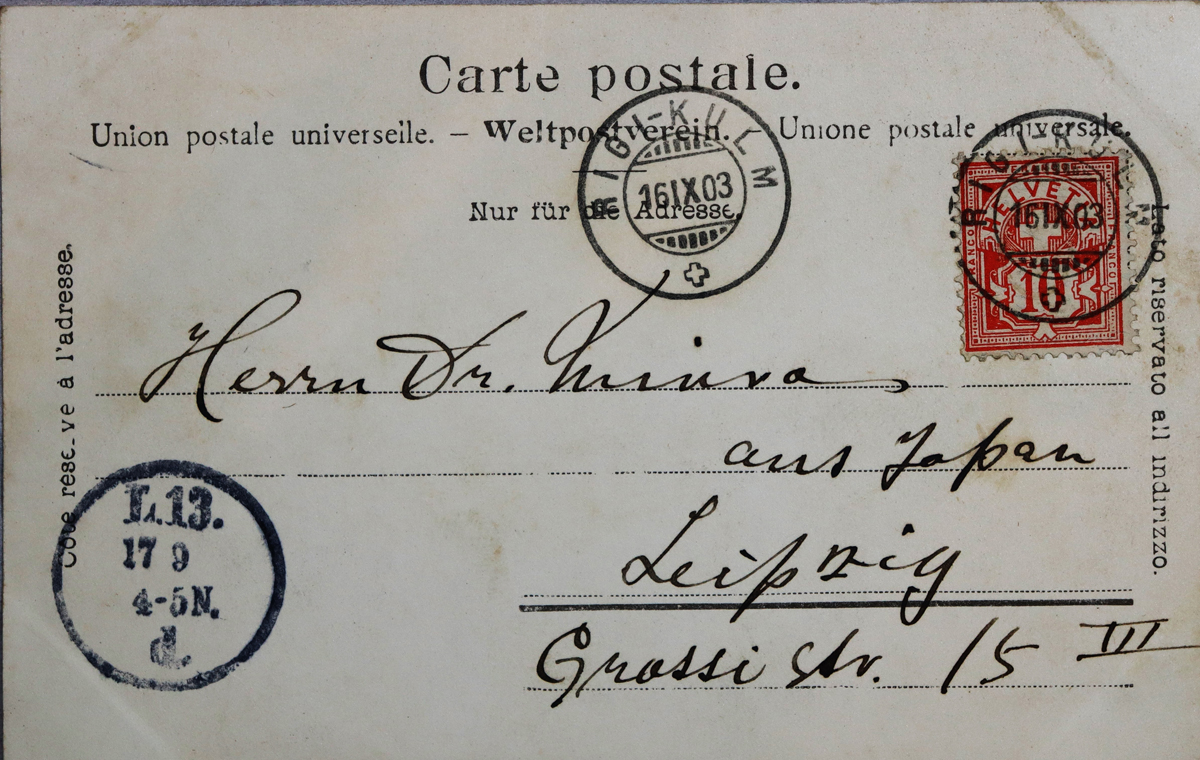 Carte postale.
Union postale universelle. – Weltpostverein. – Unione postale universale.
Nur für die Adresse.
RIGI-KULM
16 IX 03
RIGI-KULM
16 IX 03
HELVETIA
FRANCO
FRANCO
10
Côté reservé à l'adresse.
Lato riservato all indirizzo.
Herrn Dr. Miura
aus Japan
Leipzig
Grassi Str. 15 III
L.13.
17 9
4-5N.
d.